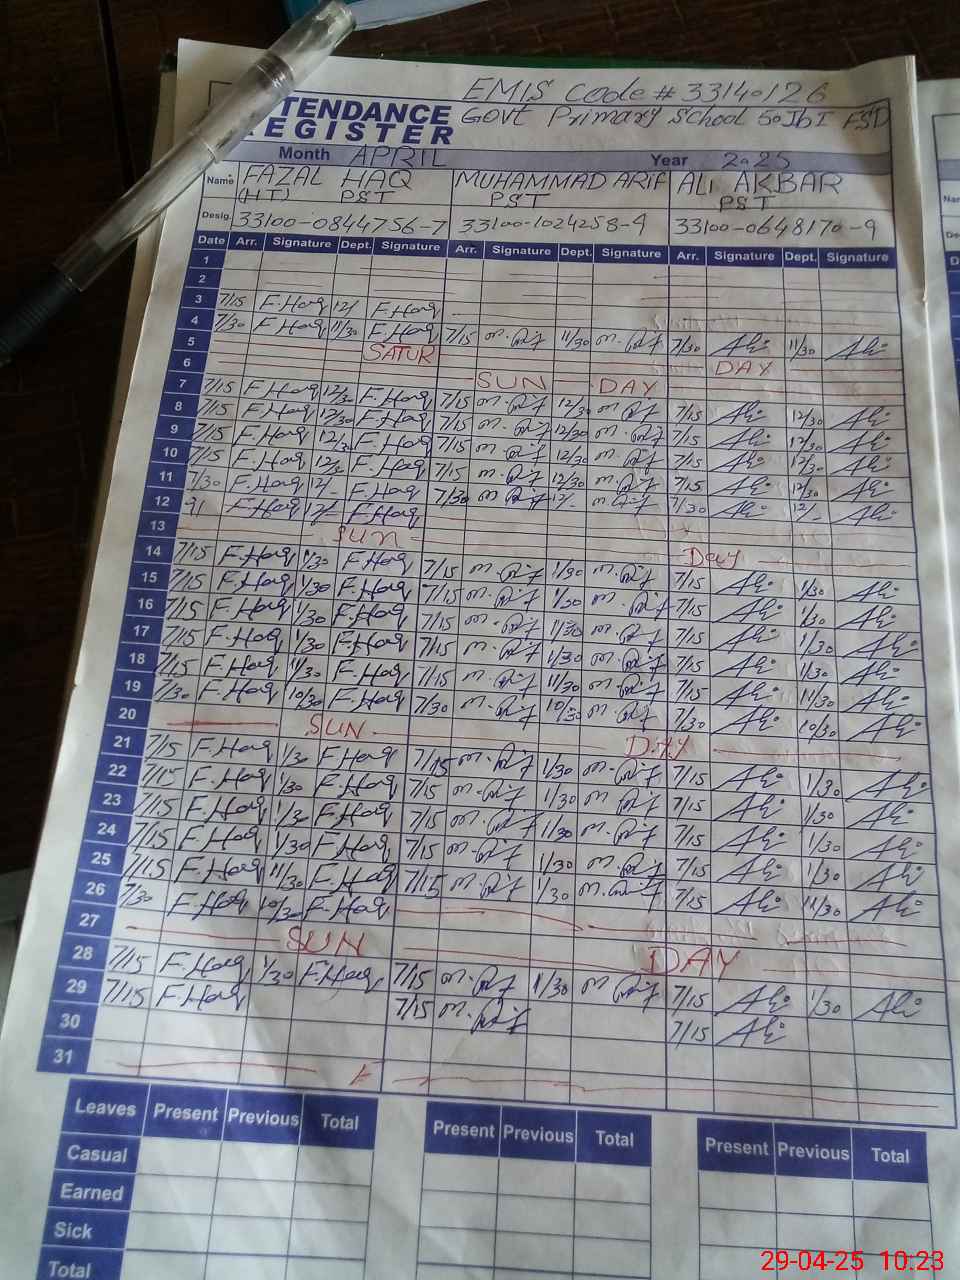 EMIS Code # 33140126
TENDANCE Govt Primary School 50JbI FSD
EGISTER
Month APRIL Year 2025
Name FAZAL HAQ MUHAMMAD ARIF ALI AKBAR
(HT) PST PST PST
Desig. 33100-0844756-7 33100-1024258-9 33100-0648170-9
Date Arr. Signature Dept. Signature Arr. Signature Dept. Signature Arr. Signature Dept. Signature
1
2
3 7/15 F.Haq 12/ F.Haq
4 7/30 F.Haq 11/30 F.Haq 7/15 11/30 7/30 Ali 11/30 Ali
5 SATUR DAY
6 SUN DAY
7 7/15 F.Haq 12/30 F.Haq 7/15 12/30 7/15 Ali 12/30 Ali
8 7/15 F.Haq 12/30 F.Haq 7/15 12/30 7/15 Ali 12/30 Ali
9 7/15 F.Haq 12/30 F.Haq 7/15 12/30 7/15 Ali 12/30 Ali
10 7/15 F.Haq 12/30 F.Haq 7/15 12/30 7/15 Ali 12/30 Ali
11 7/30 F.Haq 12/- F.Haq 7/30 12/- 7/30 Ali 12/- Ali
12 F.Haq 12/- F.Haq
13 SUN Day
14 7/15 F.Haq 1/30 F.Haq 7/15 1/30 7/15 Ali 1/30 Ali
15 7/15 F.Haq 1/30 F.Haq 7/15 1/30 7/15 Ali 1/30 Ali
16 7/15 F.Haq 1/30 F.Haq 7/15 1/30 7/15 Ali 1/30 Ali
17 7/15 F.Haq 1/30 F.Haq 7/15 1/30 7/15 Ali 1/30 Ali
18 7/15 F.Haq 11/30 F.Haq 7/15 11/30 7/15 Ali 11/30 Ali
19 7/30 F.Haq 10/30 F.Haq 7/30 10/30 7/30 Ali 10/30 Ali
20 SUN DAY
21 7/15 F.Haq 1/30 F.Haq 7/15 1/30 7/15 Ali 1/30 Ali
22 7/15 F.Haq 1/30 F.Haq 7/15 1/30 7/15 Ali 1/30 Ali
23 7/15 F.Haq 1/30 F.Haq 7/15 1/30 7/15 Ali 1/30 Ali
24 7/15 F.Haq 1/30 F.Haq 7/15 1/30 7/15 Ali 1/30 Ali
25 7/15 F.Haq 11/30 F.Haq 7/15 1/30 7/15 Ali 11/30 Ali
26 7/30 F.Haq 10/30 F.Haq
27 SUN DAY
28 7/15 F.Haq 1/30 F.Haq 7/15 1/30 7/15 Ali 1/30 Ali
29 7/15 F.Haq 7/15 7/15 Ali
30
31
Leaves Present Previous Total Present Previous Total Present Previous Total
Casual
Earned
Sick
Total
29-04-25 10:23